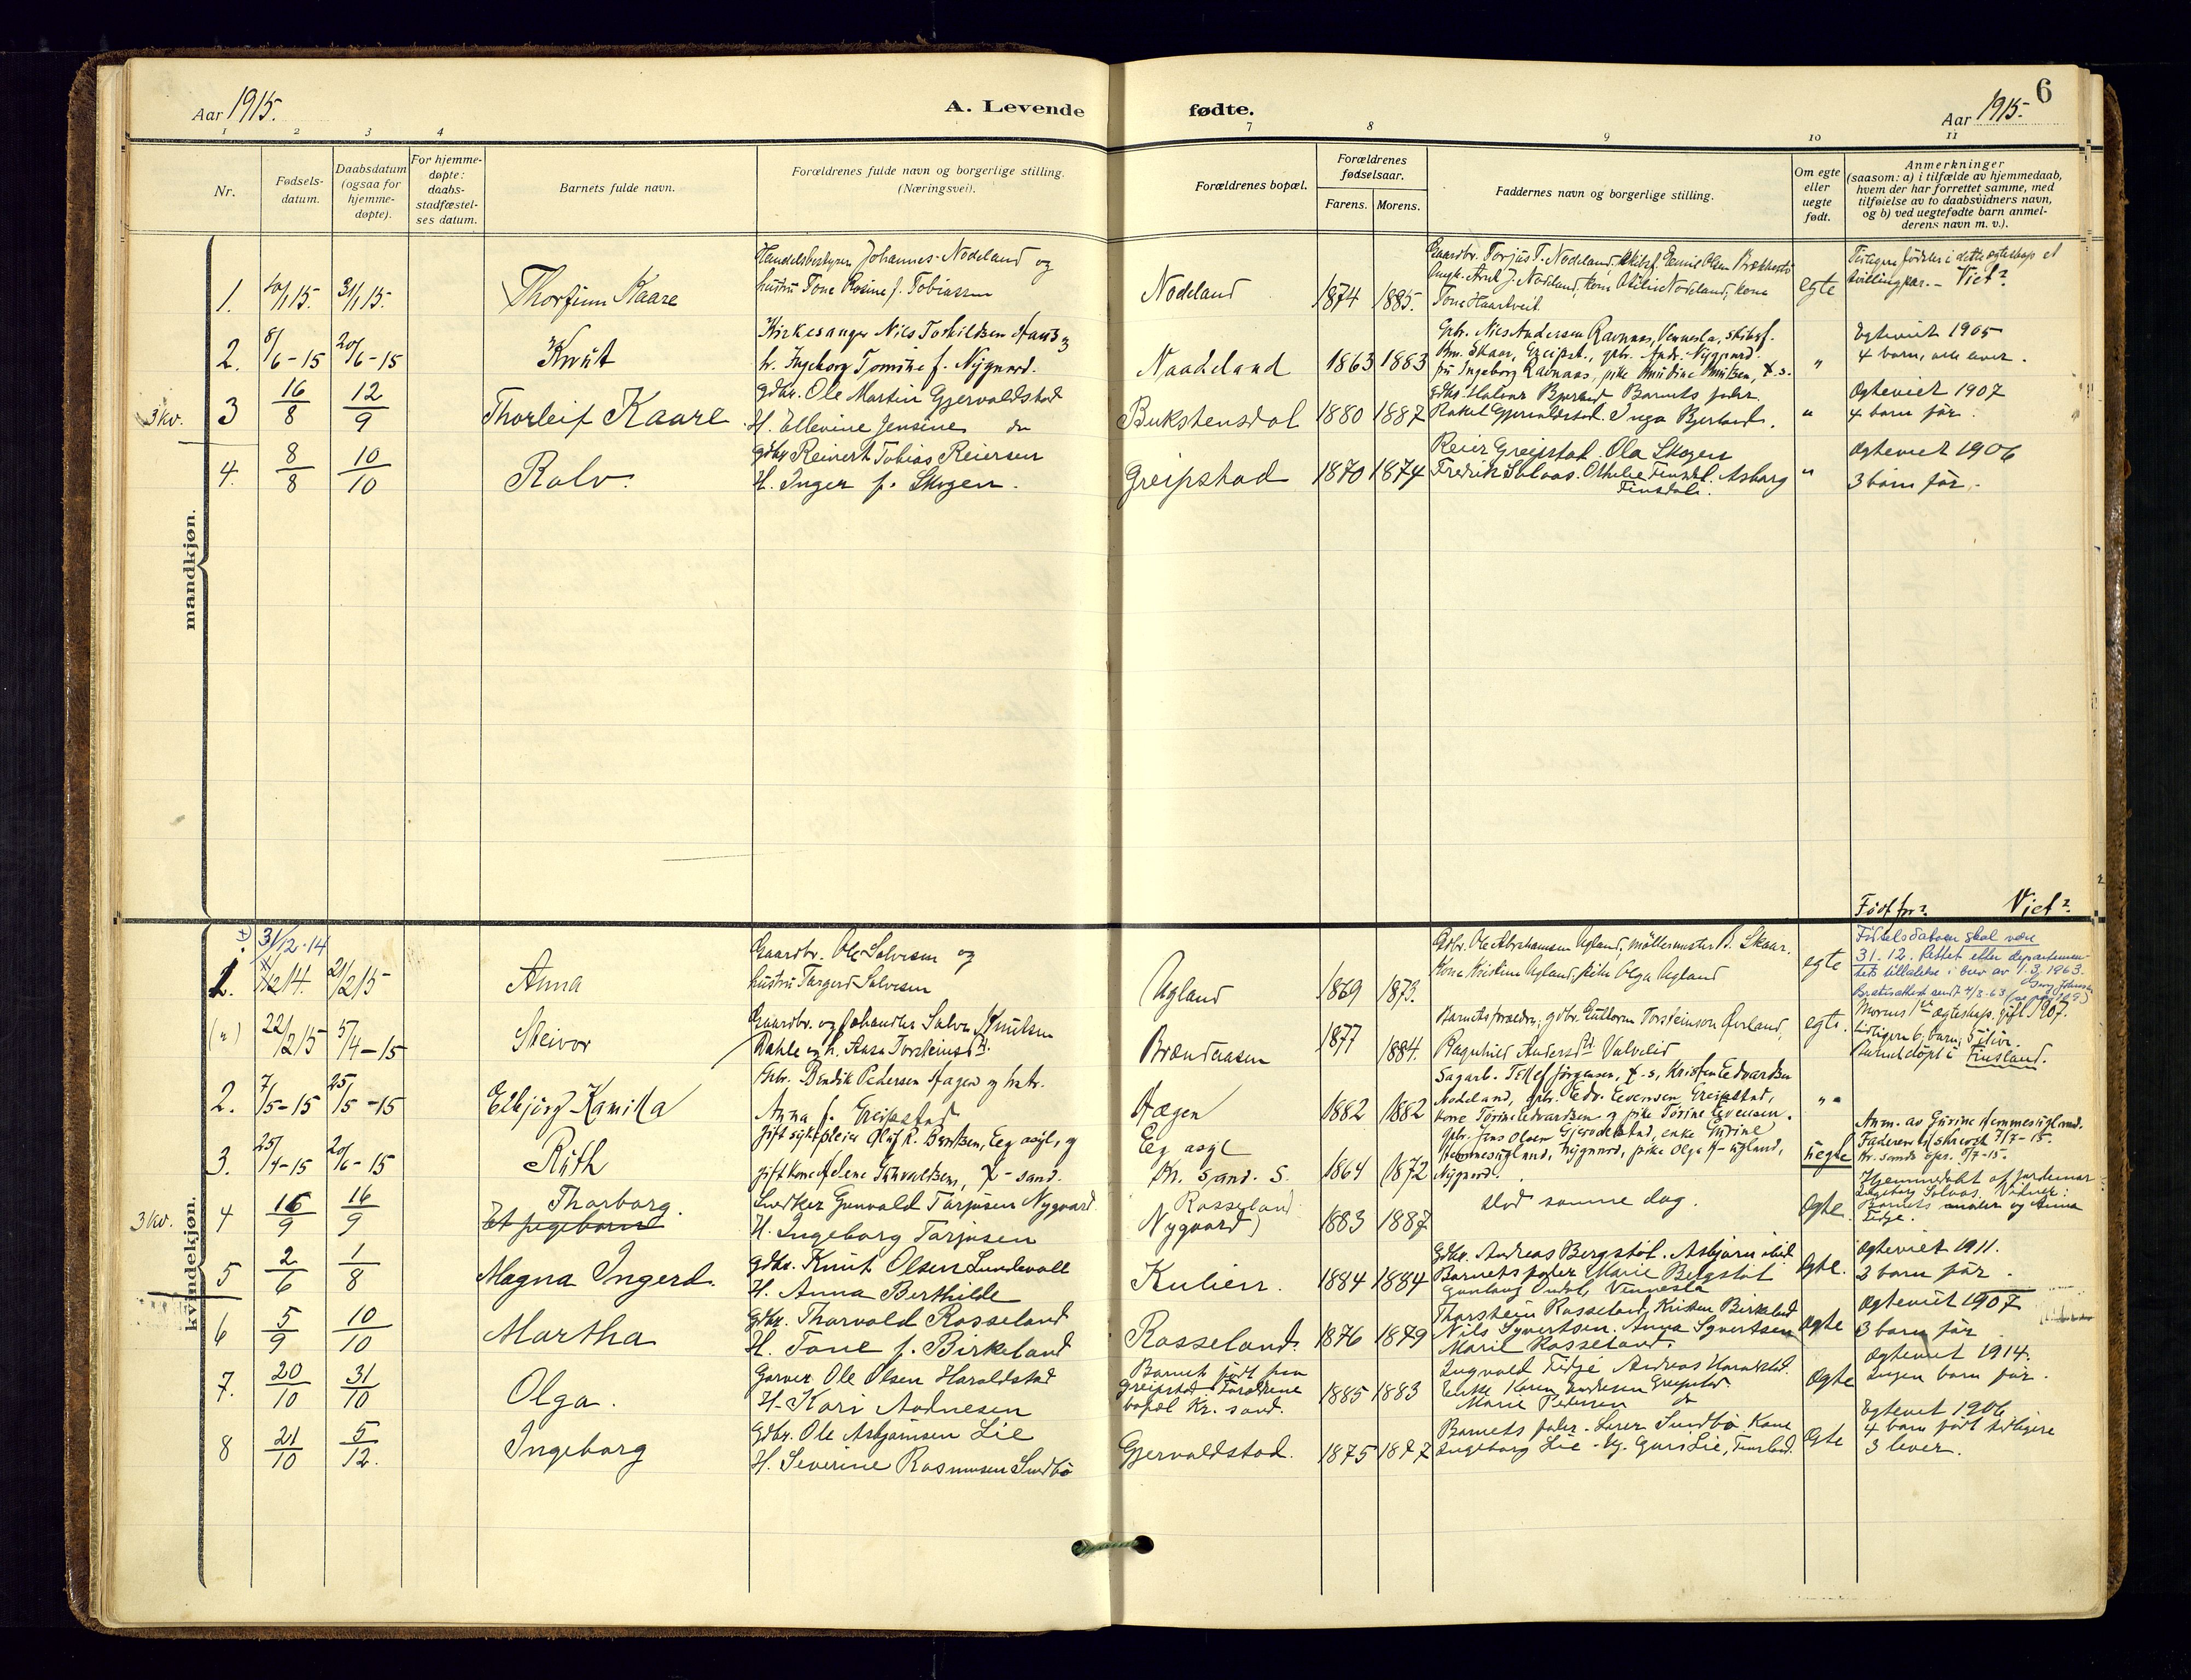 Aar 1915.
A. Levende
fødte.
Aar 1915.
6
1
2
3
4
7
8
9
10
11
Nr.
Fødsels-
datum.
Daabsdatum
(ogsaa for
hjemme-
døpte).
For hjemme-
døpte:
daabs-
stadfæstel-
ses datum.
Barnets fulde navn.
Forældrenes fulde navn og borgerlige stilling.
(Næringsvei).
Forældrenes bopæl.
Forældrenes
fødselsaar.
Farens.
Morens.
Faddernes navn og borgerlige stilling.
Om egte
eller
uegte
født.
Anmerkninger
(saasom: a) i tilfælde av hjemmedaab,
hvem der har forrettet samme, med
tilføielse av to daabsvidners navn,
og b) ved uegtefødte barn anmel-
derens navn m. v.).
mandkjøn.
1.
31/1 15.
Thorfinn Kaare
Handelsbestyrer Johannes Nodeland og
hustru Tone Rosine f. Tobiassen
Nodeland
1874
1885.
Gaardbr. Torjus T. Nodeland,
Nodeland, kone Otilie Nodeland, kone
Tone Haartveit
egte
Tidligere født i dette egteskap et
tvillingpar. - Viet?
2.
8/6-15
20/6-15
Knut
Kirkesanger Nils Torkildsen Haus og
h. Ingeborg Tomine f. Nygaard.
Naadeland
1863
1883
Gbr. Nils Andersen Ravnaas, Vennesla, skibsf.
Skaar, Greipst., gbr. Andr. Nygaard.
fru Ingeborg Ravnaas, pike Knudine Knutsen, X.s.
"
Egteviet 1905
4 barn, alle lever.
3 kv.
3
16/8
12/9
Thorleif Kaare
gdbr. Ole Martin Gjervoldstad
H. Ellevine Jensine
Bukstensdal
1880
1887
gdbr. Halvor Bjorland Barnets fader
Rakel Gjervoldstad. Inga Bjerland.
"
Egteviet 1907
4 barn før.
4.
8/8
10/10
Rolv.
gdbr Reinert Tobias Reiersen
H. Inger f. Skogen.
Greipstad
1870
1874
Reier Greipstad. Ola Skogen
Fredrik Solaas. Othilie Finsdal. Asborg
Finsdal.
"
Egteviet 1906
3 barn før.
Født før?
Viet?
kvindekjøn.
31/12-14
1.
21/2 15
Anna
Gaardbr. Ole Salvesen og
hustru Targerd Salvesen
Ugland
1869
1873.
Gdbr. Ole Abrahamsen Ugland, møllermester B. Skaar.
Kone Kristine Ugland, pike Olga Ugland
egte
Fødselsdatoen skal være
31.12. Rettet etter departemen-
tets tillatelse i brev av 1.3.1963.
(")
22/2 15
5/4-15
Steivor
Gaardbr. og Johandler Salve Knutsen
Dahle og h. Aasa Torsteinsdt.
Brændeaasen
1877
1884.
Barnets forældre, gdbr. Guttorm Torsteinson Øvland,
Ragnhild Andersdt. Valvelid
egte.
Morens 1ste egteskap. gift 1907.
tidligere 6 barn, 5 ilive.
Barnet døpt i Finsland.
2.
7/5-15
25/5-15
Elbjørg Kamilla
Gbr. Bendik Pedersen Hagen og hstr.
Anna f. Greipstad
Hægen
1882
1882
Sagarb. Tellef Jørgensen, X.s, Kristen Edvardsen
Nodeland, gbr. Edv. Evensen Greipstad,
kone Torine Edvardsen og pike Torine Evensen.
" "
3.
25/4-15
20/6-15
Ruth
gift sykepleier Oluf R. Berntsen, Eeg asyl, og
gift kone Helene Tharaldsen, X-sand.
Eg asyl
Kr. Sand. S.
1864
1872
gbr. Jens Olsen Gjervoldstad, enke Gurine
Hemmesugland, Nygaard, pike Olga H-ugland,
Nygaard.
uegte
Anm. av Gurine Hemmesugland.
Faderen tilskrevet 7/7-15.
3 kv.
4
16/9
16/9
Thorborg.
Et pigebarn
Snedker Gunvald Tarjusen Nygaard
H. Ingeborg Tarjusen
Rosseland
Nygaard)
1883
1887
død samme dag.
Egte.
Hjemmedøbt af jordemor
Ingeborg Solaas. Vidner:
Barnets moder og Anna
Tidje.
5
2/6
1/8
Magna Ingerd.
gdbr. Knut Olsen Lundevoll
H. Anna Berthilde
Kulien.
1884
1884
Gdbr. Andreas Bergstøl. Asbjørn ibid
Barnets fader Marie Bergstøl
Gunlaug Omdal, Vennesla
Egte.
Egteviet 1911.
2 barn før.
6
5/9
10/10
Martha
gdbr. Thorvald Rosseland
H. Tone f. Birkeland
Rosseland.
1876
1879
Thorstein Rosseland, Kristen Birkeland
Nils Syvertsen. Anna Syvertsen
Marie Rosseland.
Egte
Egteviet 1907
3 barn før
7.
20/10
31/10
Olga.
Garver Ole Olsen Haraldstad
H. Kari Aadnesen
Barnet født paa
Greipstad Forældrene
bopæl Kr. sand.
1885
1883
Ingvald Tidje Andreas Haraldstad.
Enke Karen Andresen Greipstad.
Marie Pedersen do
Egte
Egteviet 1914.
Ingen barn før.
8
21/10
5/12.
Ingeborg
Gdbr. Ole Asbjørnsen Lie
H. Severine Rasmusen Sundbø
Gjervoldstad.
1875
1877
Barnets fader. Lærer Sundbø Kone
Ingeborg Lie. Ug. Guri Lie, Finsland.
Egte
Egteviet 1906
4 barn født tidligere
3 lever.